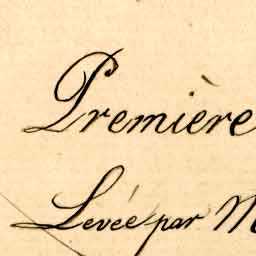 Première
Levée par M